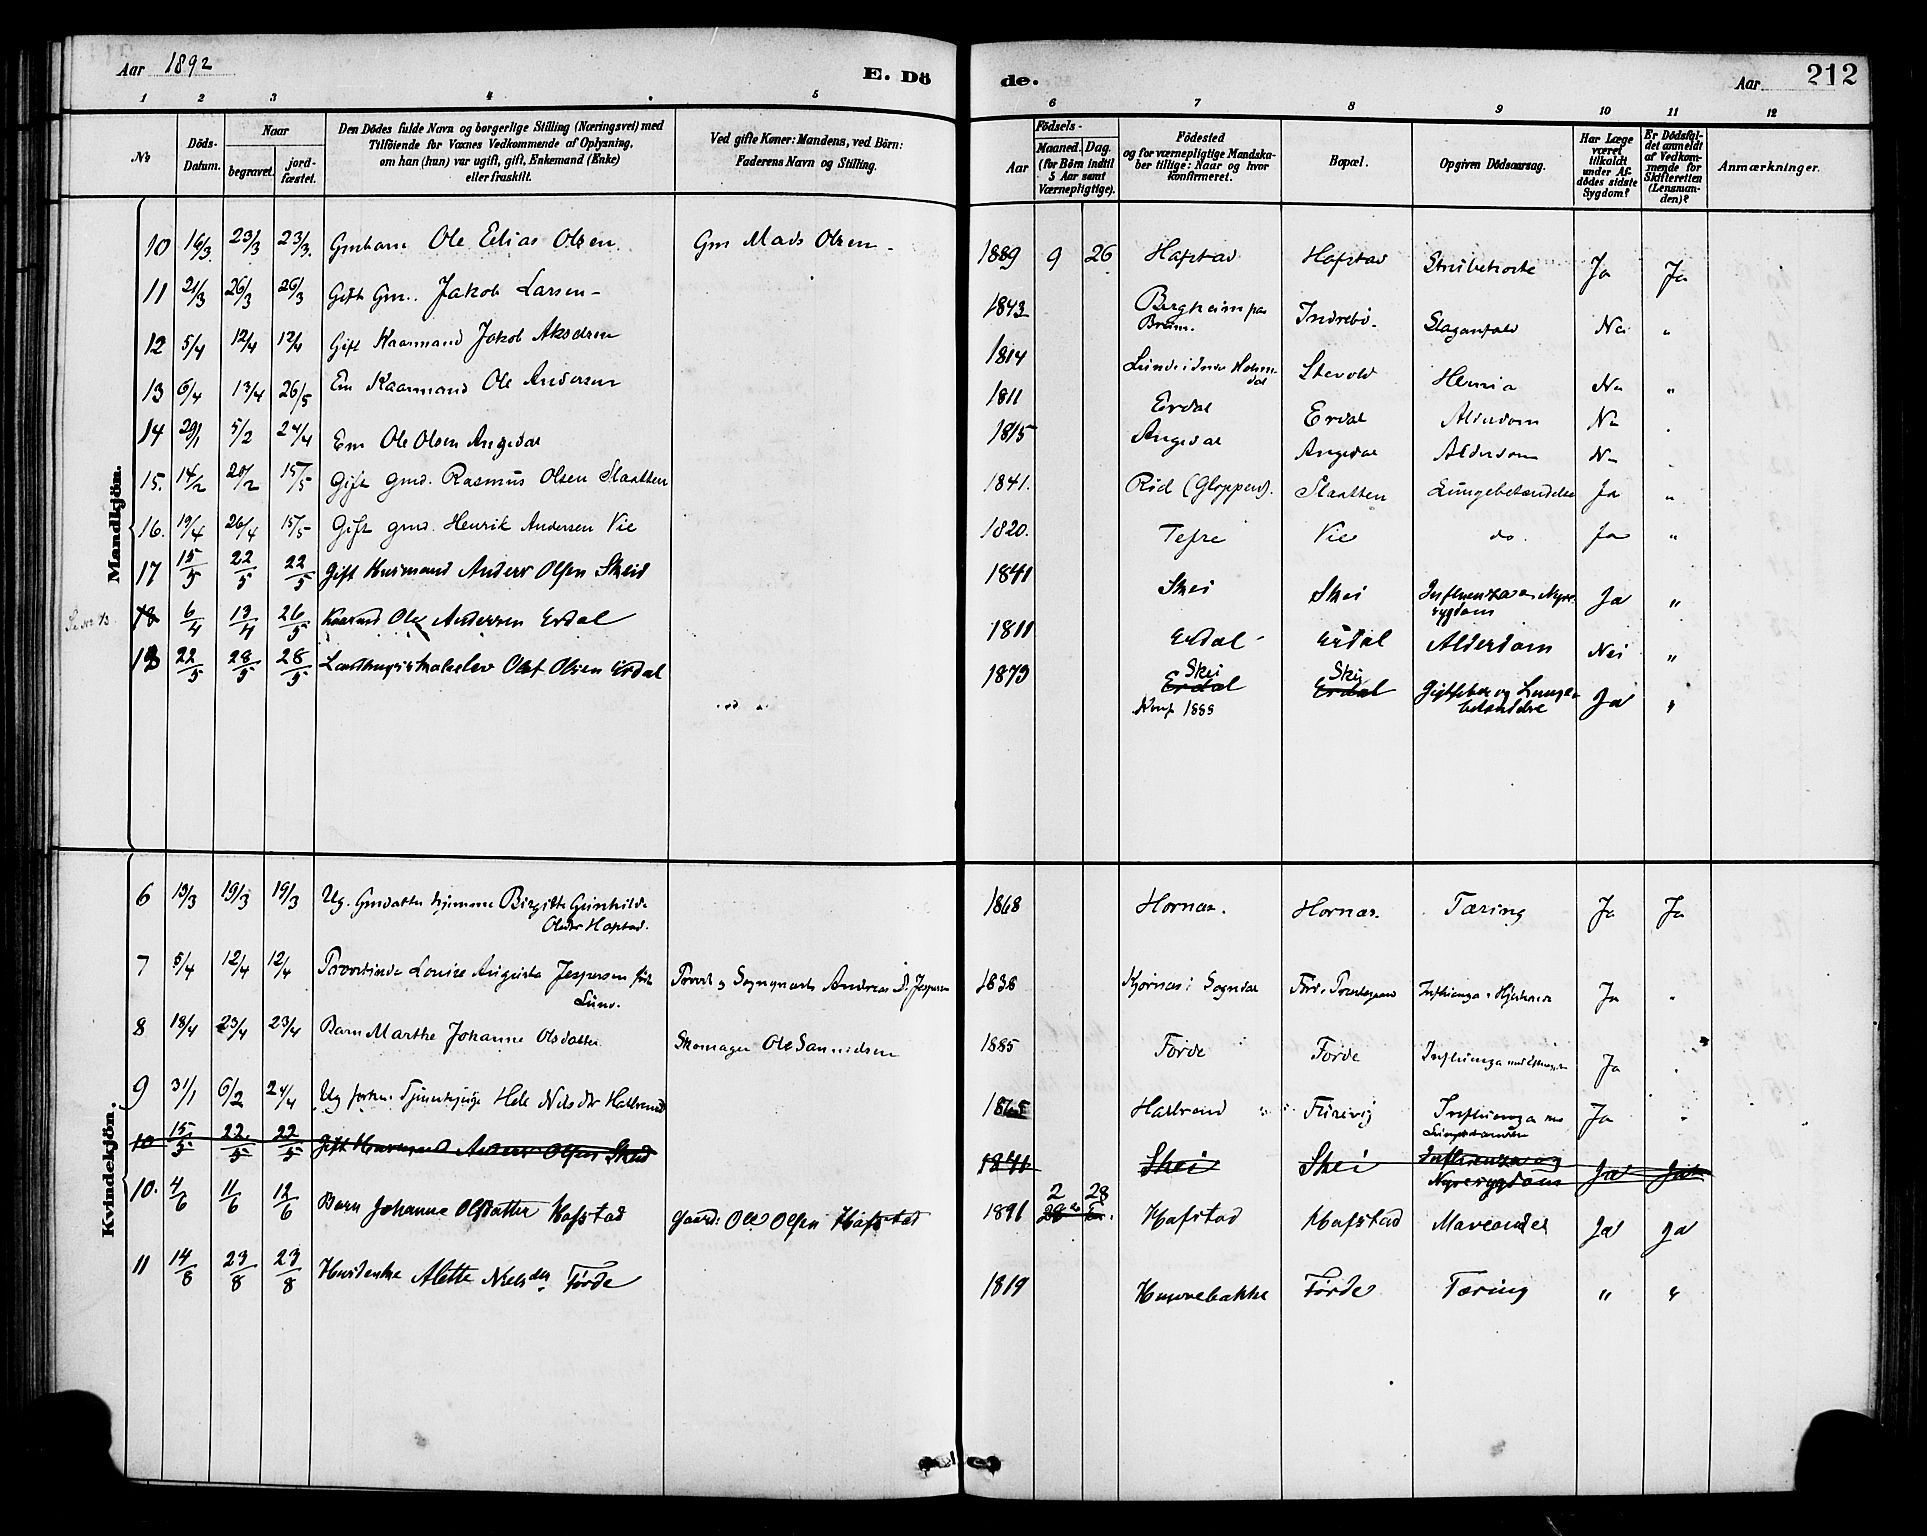 Aar 1892
E. Dö
de.
Aar
212
1 2 3 4 5 6 7 8 9 10 11 12
No
Döds-Datum.
Naar
begravet.
jord-fæstet.
Den Dödes fulde Navn og borgerlige Stilling (Næringsvei) med
Tilföiende for Vaxnes Vedkommende af Oplysning,
om han (hun) var ugift, gift, Enkemand (Enke)
eller fraskilt.
Ved gifte Koner: Mandens, ved Börn:
Faderens Navn og Stilling.
Födsels-
Aar
Maaned. Dag.
(for Börn indtil
5 Aar samt
Værnepligtige).
Födested
og for værnepligtige Mandska-
ber tillige: Naar og hvor
konfirmeret.
Bopæl.
Opgiven Dödsaarsag.
Har Læge
været
tilkaldt
under Af-
dödes sidste
Sygdom?
Er Dödsfal-
det anmeldt
af Vedkom-
mende for
Skifteretten
(Lensman-
den)?
Anmærkninger.
Mandkjön.
10 16/3 23/3 23/3 Gmbarn Ole Elias Olsen Gm Mads Olsen 1889 9 26 Hafstad Hafstad Strubehoste Ja Ja
11 21/3 26/3 26/3 Gift Gm. Jakob Larsen 1843 Bergheim paa Breim. Indrebö Slaganfald Nei "
12 5/4 12/4 12/4 Gift Kaarmand Jakob Akselsen 1814 Lunde i Indre Holmedal Stevold Nei "
13 6/4 13/4 26/5 Em Kaarmand Ole Andersen 1811 Erdal Erdal Alderdom Nei "
14 29/1 5/2 24/4 Em Ole Olsen Angedal 1815 Angedal Angedal Alderdom Nei "
15. 14/2 20/2 15/5 Gift gmd. Rasmus Olsen Slaatten 1841. Röd (Gloppen). Slaatten Lungebetændelse Ja "
16. 19/4 26/4 15/5 Gift gmd. Henrik Andersen Vie 1820. Tefre Vie do. Ja "
17 15/5 22/5 22/5 Gift Husmand Anders Olsen Skeid 1841 Skei Skei Influenza og Nyre-
sygdom Ja "
18 6/4 13/4 26/5 Kaarmd Ole Andersen Erdal 1811 Erdal Erdal Alderdom Nei "
18 22/5 28/5 28/5 Landbrugsskoleelev Olaf Olsen Erdal 1873 Erdal Skei Erdal Skei Gigtfeber og Lunge-
betændelse Ja "
Konf 1888
Kvindekjön.
6 13/3 19/3 19/3 Ug. Gmdatter hjemme Birgitte Gunhilde
Olsdtr Hafstad. 1868 Hornæs. Hornæs. Tæring Ja Ja
7 5/4 12/4 12/4 Provstinde Louise Augusta Jespersen föd
Lund. Provst og Sognepræst Andreas D. Jespersen 1838 Kjörnæs i Sogndal Förde Prestegaard Influenza Ja "
8 18/4 23/4 23/4 Barn Marthe Johanne Olsdatter Skomager Ole 1885 Förde Förde Influenza Ja "
9 31/1 6/2 24/4 Ug Tjenestepige Nelsdtr Halbrend 1865 Halbrend Influenza Ja "
10 15/5 22/5 22/5 Gift Husmand Anders Olsen Skeid 1841 Skei Skei Influenza og
Nyresygdom Ja Ja
10. 4/6 11/6 12/6 Barn Johanne Olsdatter Hafstad Gaard: Ole Olsen Hafstad 1891 2 28 Hafstad Hafstad Maveonde Ja Ja
11 14/8 23/8 23/8 Husdenke Alette Nielsdtr Förde 1819 Husnebakke Förde Tæring " "